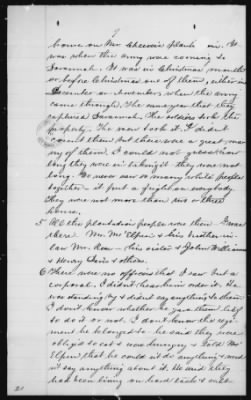 2
home on Mr Cheever's plantn in. It
was when the army was coming to
Savannah. It was in Christmas month
or before Christmas one of them, either in
December or November, when the army
came through. The same year that they
captured Savannah. The soldiers took the
property. I saw them took it. I didnt
count them but there was a great many
of them. I could not guess how
long they were in taking it they was not
long. I never saw so many white people
together - it put a fright on everybody
They was not more than two or three
hours.
5 All the plantation people was there
there. Mr. McElpin & his brother in
law Mr. Rose - his sister & John Williams
& Henry Davis & others.
6 There were no officers that I saw but a
corporal. I didnt hear him order it. He
was standing by & didnt say anything to them
I dont know whether he gave them leave
to do it or not. I dont know the regi
ment he belonged to - he said they were
oblig'd to eat & was hungry & told Mr
Elpin that he could not do anything - and
nt say anything about it. He said they
had been living on hard tack & out